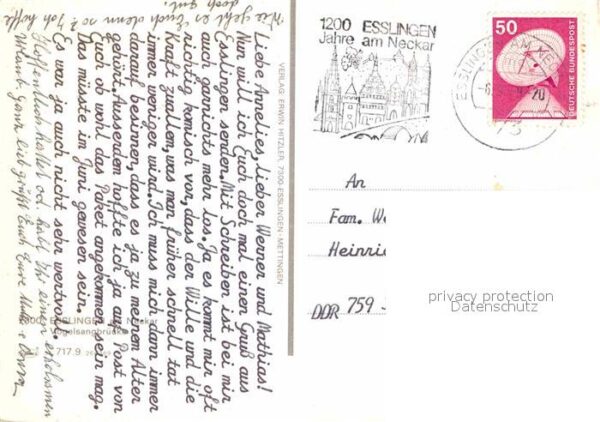 Wie geht es Euch denn so? Ich hoffe
doch gut.
Liebe Annelies, lieber Werner und Mathias!
Nun will ich Euch doch mal einen Gruß aus
Esslingen senden. Mit Schreiben ist bei mir
auch garnichts mehr los. Ja es kommt mir oft
richtig komisch vor, dass der Wille und die
Kraft zu allem, was man früher schnell tat
immer weniger wird. Ich muss mich dann immer
darauf besinnen, dass es ja zu meinem Alter
gehört. Ausserdem hoffte ich ja auf Post von
Euch ob wohl das Paket angekommen sein mag.
Das müsste im Juni gewesen sein.
Es war ja auch nicht sehr wertvoll.
Hoffentlich hattet od. habt Ihr einen erholsamen
Urlaub. Ganz lieb grüßt Euch Eure
7300 ESSLINGEN am Neckar
Vogelsangbrücke
717.9
VERLAG: ERWIN HITZLER, 7300 ESSLINGEN-METTINGEN
1200 ESSLINGEN
Jahre am Neckar
ESSLINGEN AM NECKAR
-20
73
50
DEUTSCHE BUNDESPOST
An
Fam. W
Heinri
DDR 759
privacy protection
Datenschutz